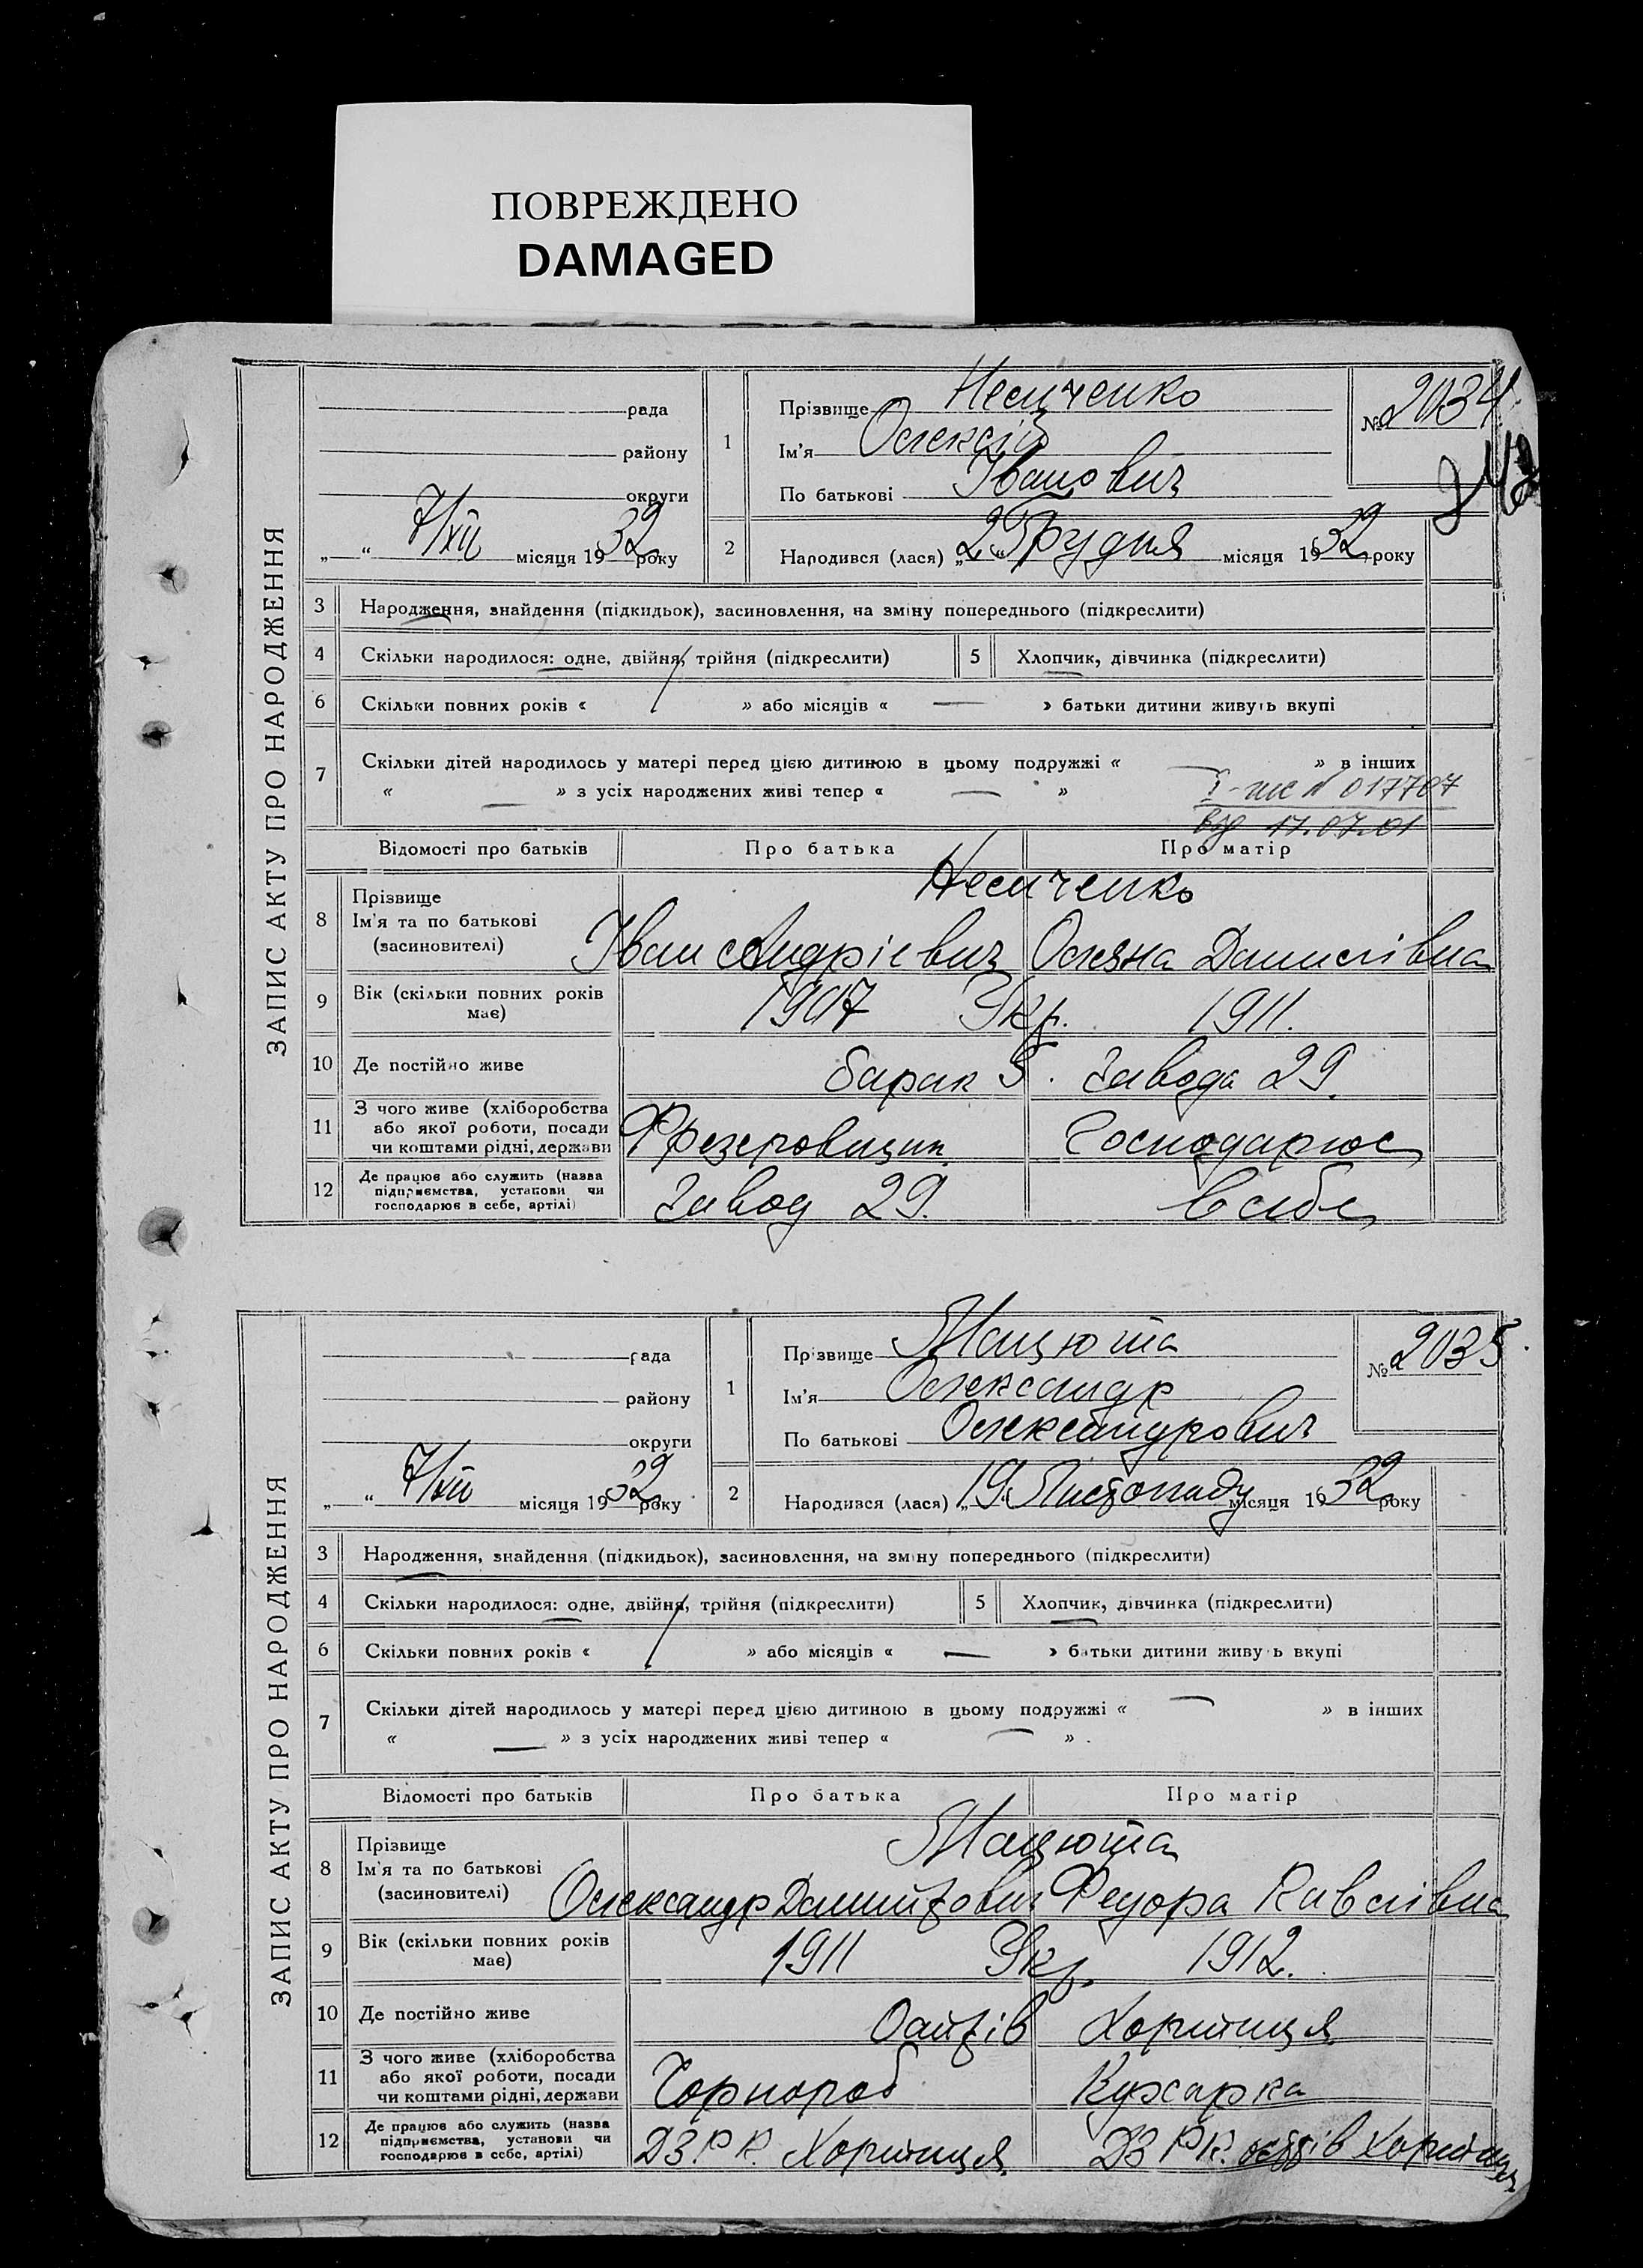 ПОВРЕЖДЕНО
DAMAGED
ЗАПИС АКТУ ПРО НАРОДЖЕННЯ
рада
району
округи
„ “ 7/XII місяця 1932 року
1
Прізвище
Ім'я Олексій
По батькові Іванович
№ 2034
2
Народився (лася) „2“ Грудня місяця 1932 року
3 Народження, знайдення (підкидьок), засиновлення, на зміну попереднього (підкреслити)
4 Скільки народилося: одне, двійня, трійня (підкреслити) 5 Хлопчик, дівчинка (підкреслити)
6 Скільки повних років « 1 » або місяців « — » батьки дитини живуть вкупі
7 Скільки дітей народилось у матері перед цією дитиною в цьому подружжі « — » в інших
« — » з усіх народжених живі тепер « — »
№ 017707
від 17.07.01
Відомості про батьків Про батька Про матір
8 Прізвище
Ім'я та по батькові
(засиновителі)
Іван Андрієвич Оляна Данилівна
9 Вік (скільки повних років має) 1907 Укр. 1911.
10 Де постійно живе барак 5. Завода 29
11 З чого живе (хліборобства або якої роботи, посади чи коштами рідні, держави Фрезеровщик Господарює
12 Де працює або служить (назва підприємства, установи чи господарює в себе, артілі) Завод 29. в себе
ЗАПИС АКТУ ПРО НАРОДЖЕННЯ
рада
району
округи
„ “ 7/XII місяця 1932 року
1
Прізвище Мацюта
Ім'я Олександр
По батькові Олександрович
№ 2035
2
Народився (лася) „19“ Листопаду місяця 1932 року
3 Народження, знайдення (підкидьок), засиновлення, на зміну попереднього (підкреслити)
4 Скільки народилося: одне, двійня, трійня (підкреслити) 5 Хлопчик, дівчинка (підкреслити)
6 Скільки повних років « 1 » або місяців « — » батьки дитини живуть вкупі
7 Скільки дітей народилось у матері перед цією дитиною в цьому подружжі « — » в інших
« — » з усіх народжених живі тепер « — »
Відомості про батьків Про батька Про матір
8 Прізвище
Ім'я та по батькові
(засиновителі)
Мацюта
Олександр Дмитрович Федора Павлівна
9 Вік (скільки повних років має) 1911 Укр. 1912.
10 Де постійно живе Острів Хортиця
11 З чого живе (хліборобства або якої роботи, посади чи коштами рідні, держави Чорнороб Кухарка
12 Де працює або служить (назва підприємства, установи чи господарює в себе, артілі) ДЗРК. Хортиця ДЗРК. острів Хортиця